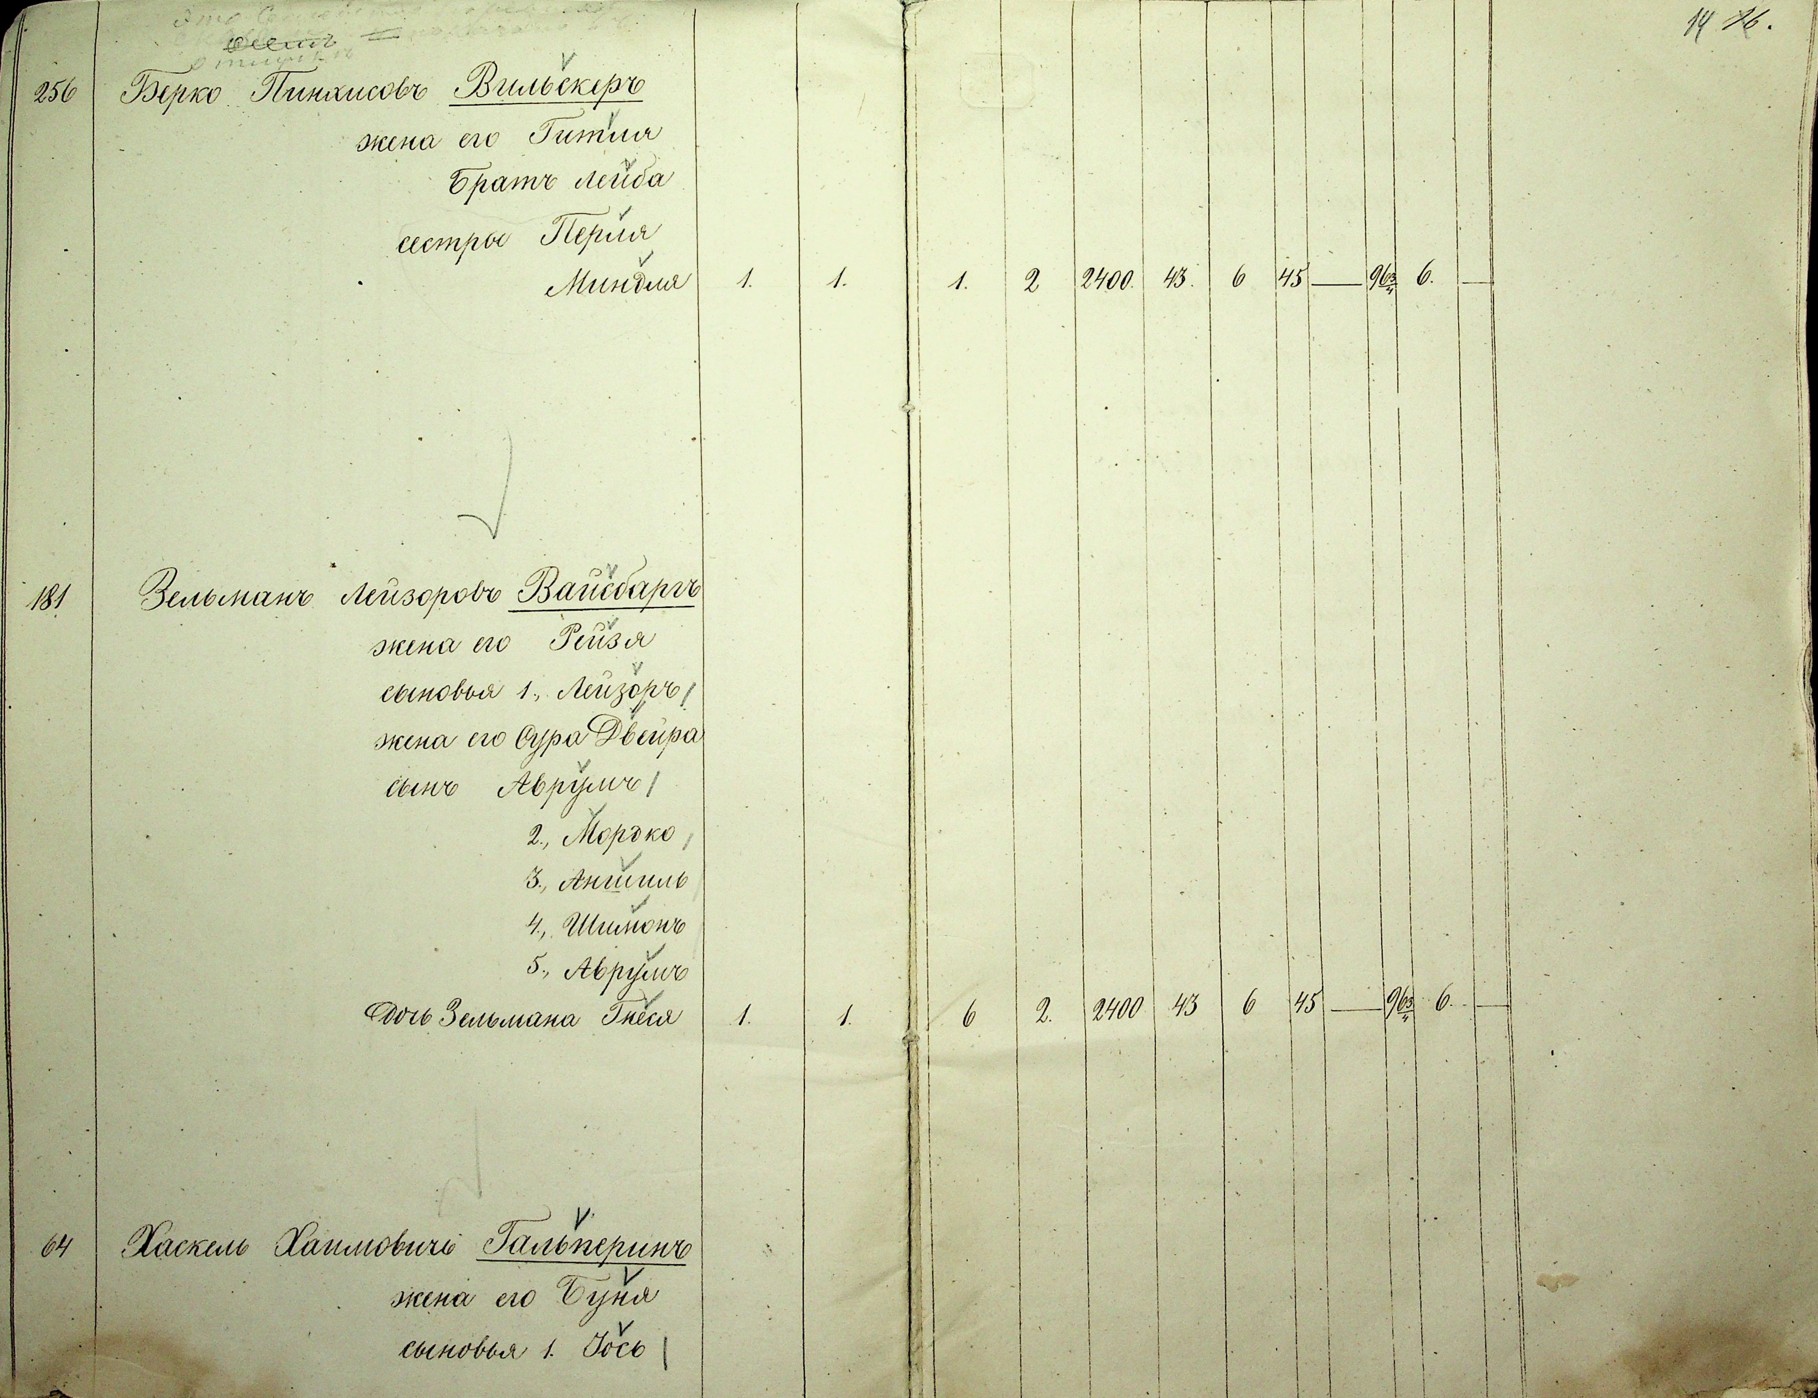 14 16.
256 Берко Пинхисовъ Вильскеръ
жена его Гитля
Братъ Лейба
сестры Перля
Миндля 1. 1. 1. 2 2400. 43. 6 45 — 96 3/4 6. —
181 Зельманъ Лейзоровъ Вайсбаргъ
жена его Рейзя
сыновья 1., Лейзоръ
жена его Сура Двейра
сынъ Аврумъ
2., Мордко
3., Аншиль
4., Шимонъ
5., Аврумъ
Дочь Зельмана Гнеся 1. 1. 6 2. 2400 43 6 45 — 96 3/4 6. —
64 Хаскель Хаимовичъ Гальперинъ
жена его Буня
сыновья 1. Іось